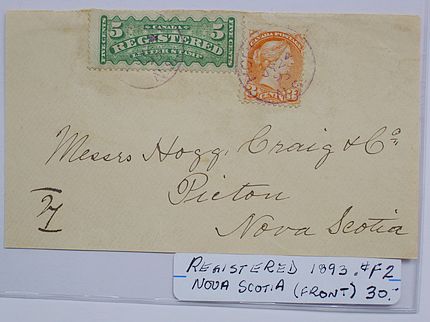 CANADA
5 REGISTERED 5
LETTER STAMP
FIVE CENTS
FIVE CENTS
CANADA POSTAGE
3 CENTS 3
Messrs Hogg, Craig & Co.
Pictou
Nova Scotia
REGISTERED 1893. #F2
NOVA SCOTIA (FRONT) 30.-